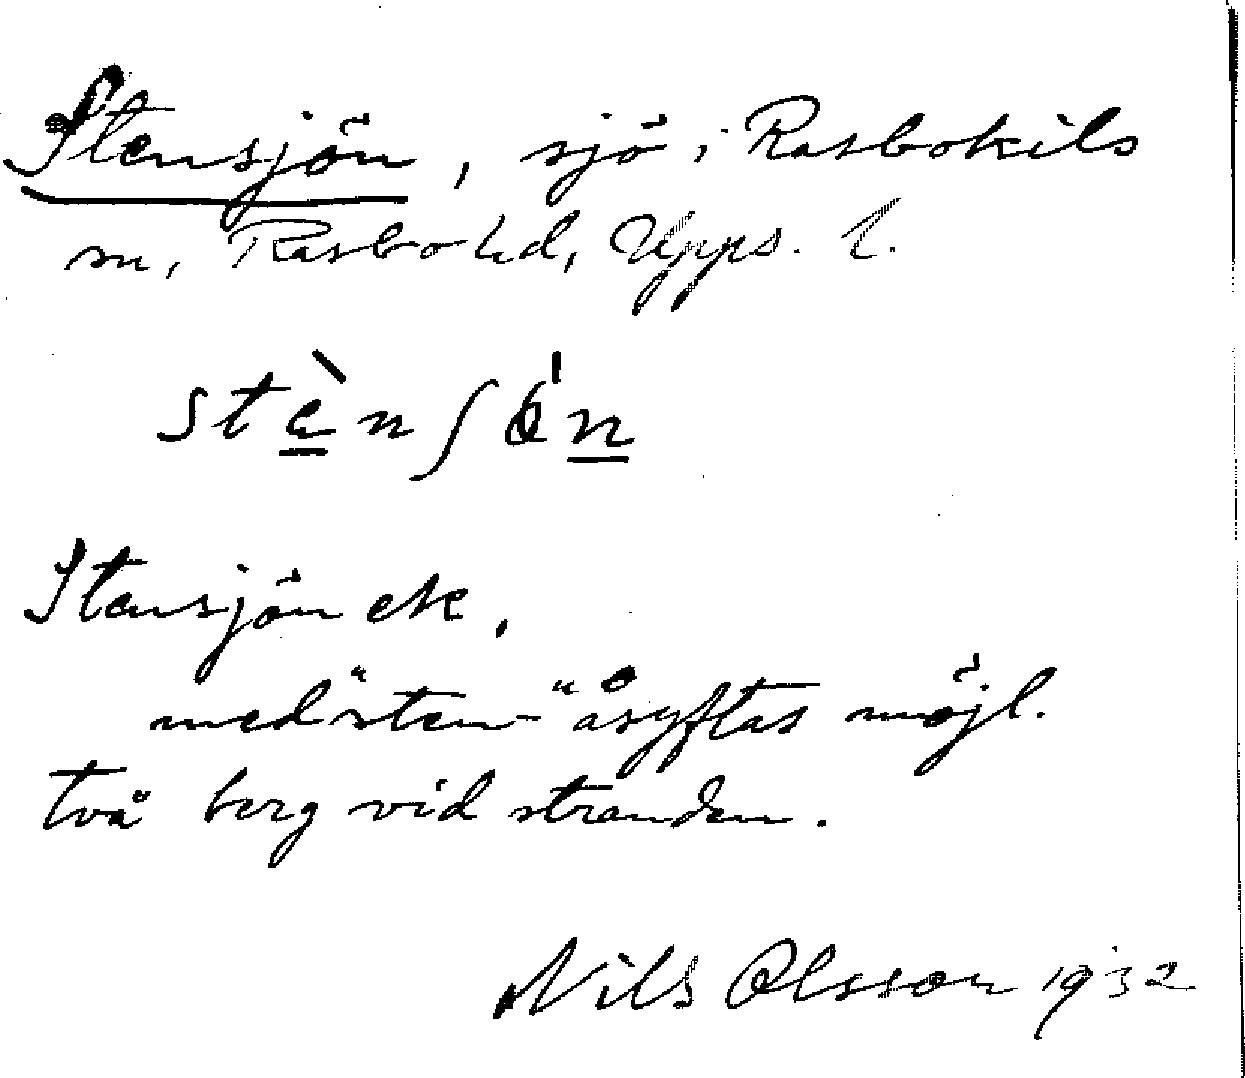 Stensjön, sjö i Rasbokils
sn, Rasbo hd, Upps. l.
stènʃö́n
Stensjön ek.
med "sten-" åsyftas möjl.
två berg vid stranden.
Nils Olsson 1932